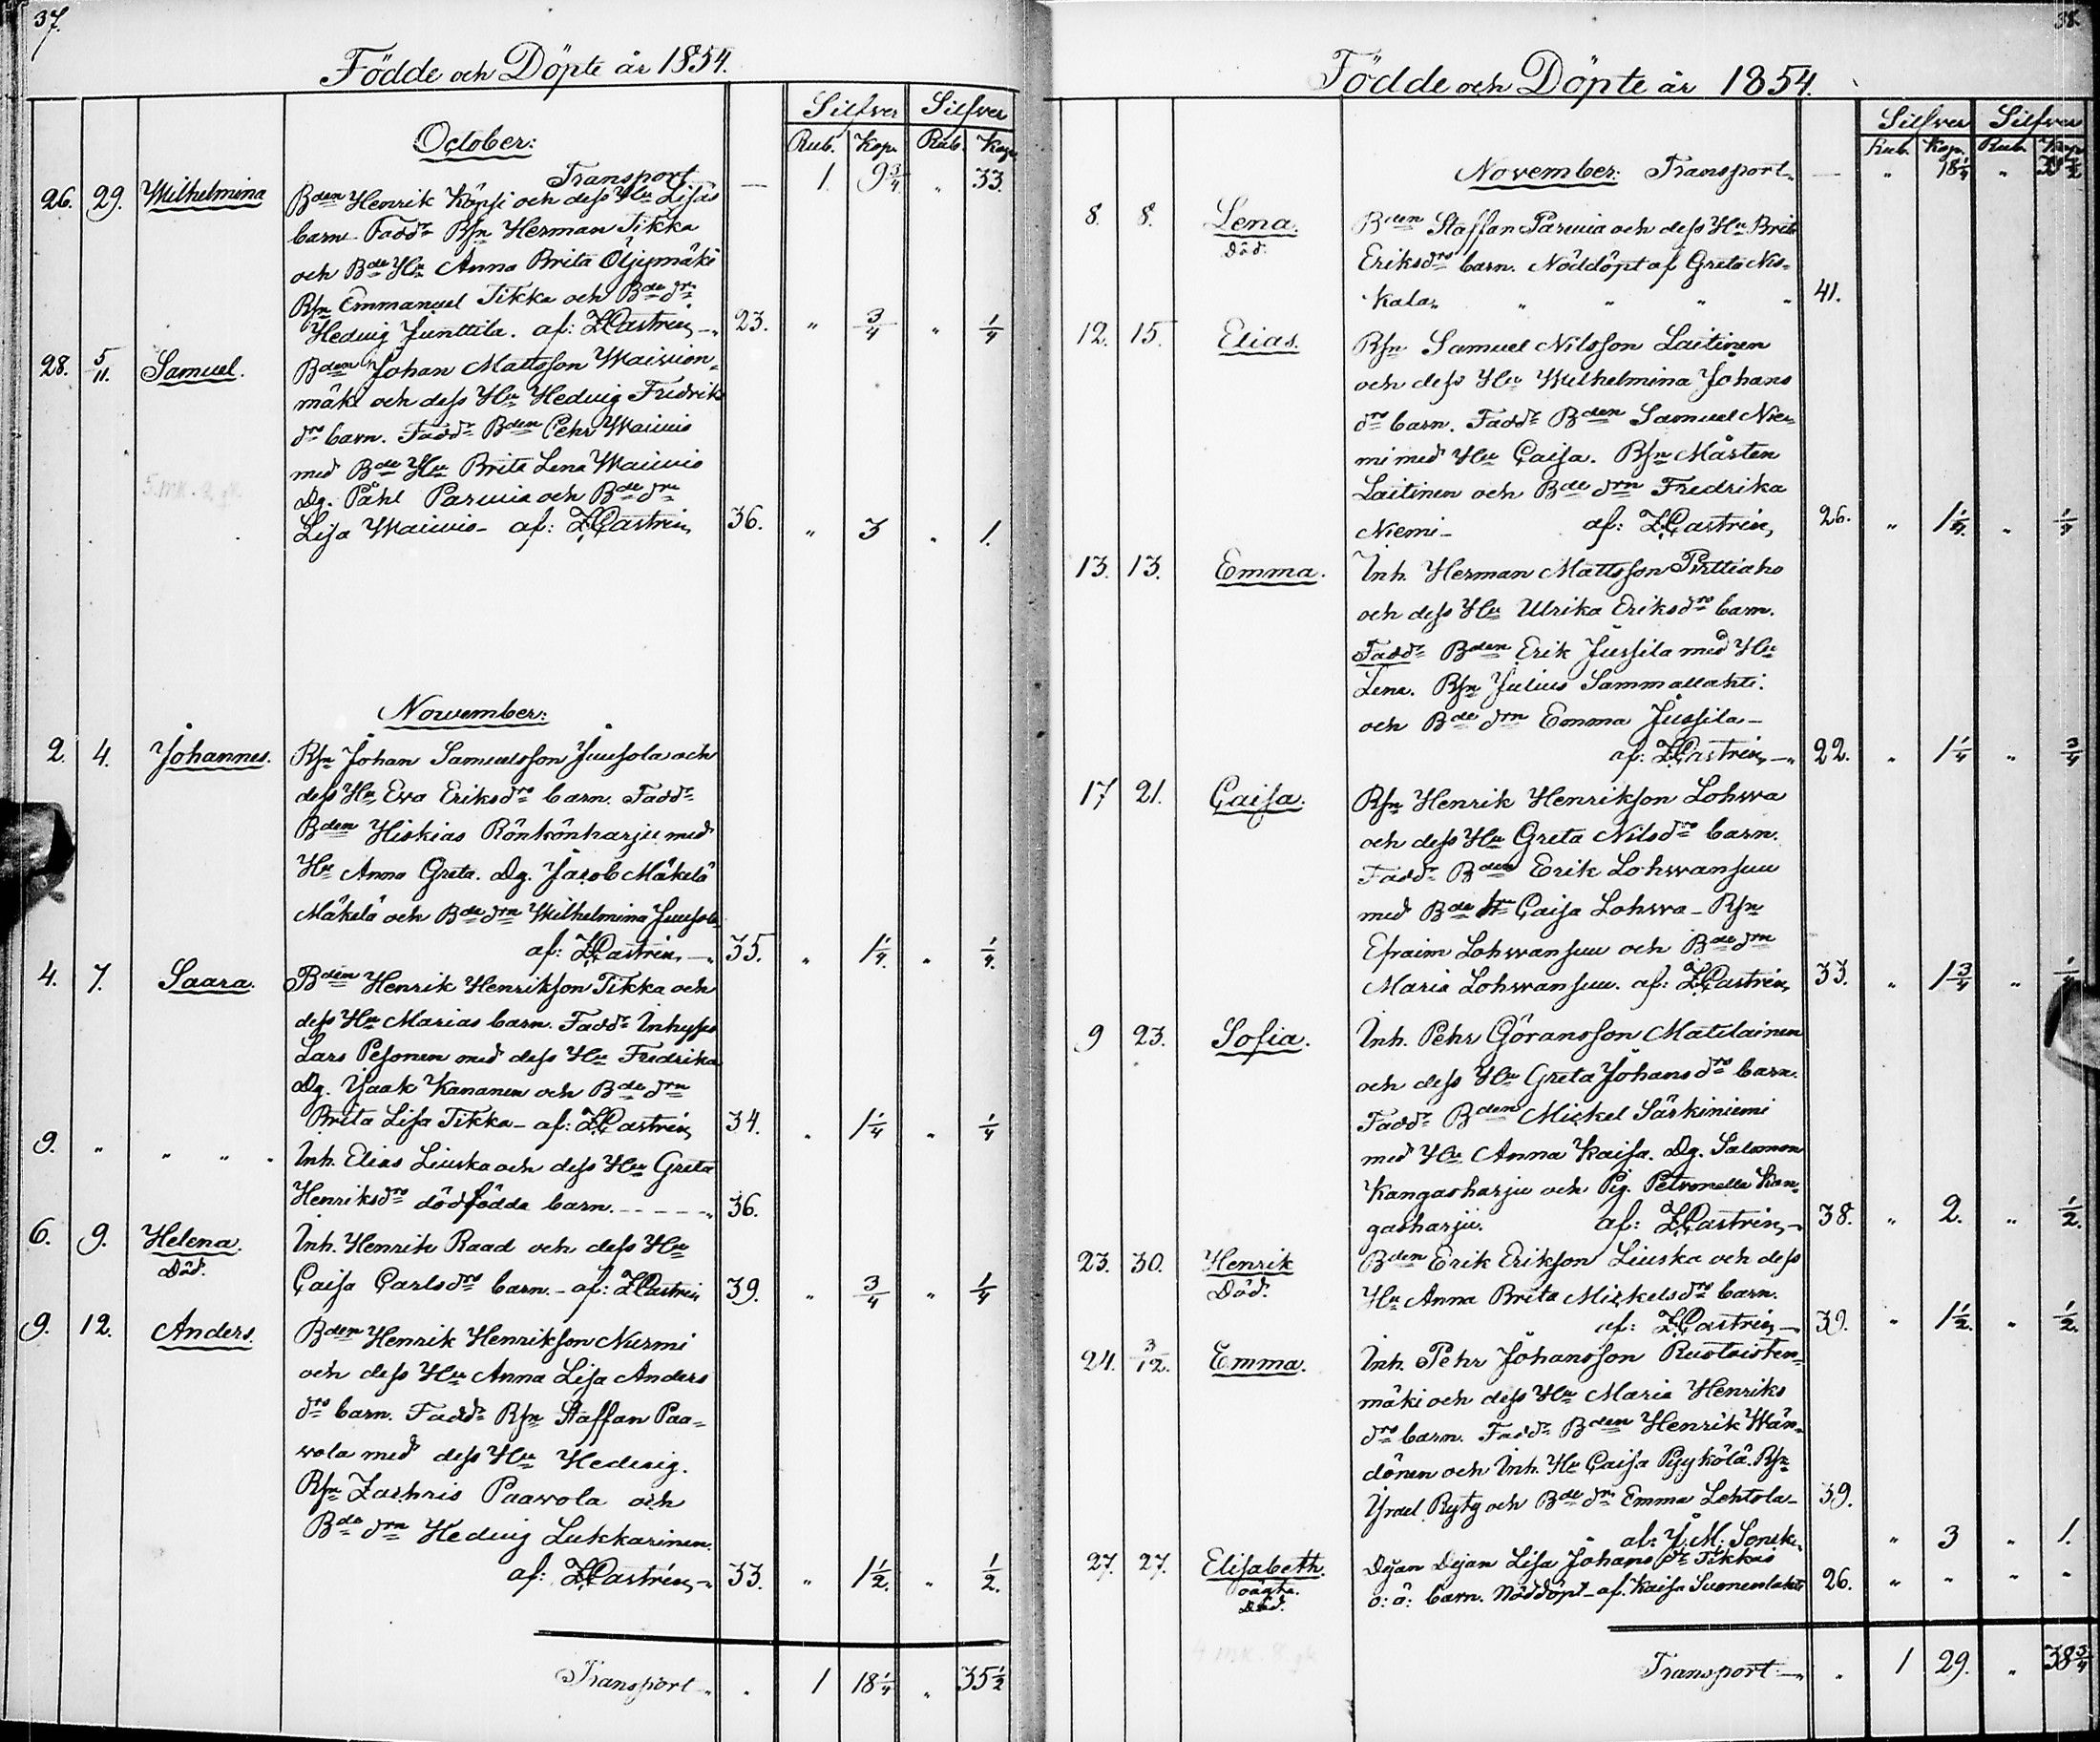 37.
Födde och Döpte år 1854.
Silfver Silfver
October: Rub. Kop. Rub. Kop.
Transport — 1. 9 3/4 " 33.
26. 29. Wilhelmina Bden Henrik Köpsi och dess Hu Lisas
barn Fadd: Bsn Herman Tikka
och Bde Hu Anna Brita Öljymäki
Bsn Emmanuel Tikka och Bde dr:
Hedvig Junttila. af: Z Castrén 23. " 3/4 " 1/4
28. 5/11. Samuel. Bden Johan Mattsson Waivion-
mäki och dess Hu Hedvig Fredriks
drs barn. Fadd: Bden Pehr Waivio
med Bde Hu Brita Lena Waivio
Dg. Påhl Parvia och Bde drn
Lisa Waivio - af: Z Castrén 36. " 3 " 1.
November:
2. 4. Johannes. Bsn Johan Samuelsson Juusola och
dess Hu Eva Eriksdrs barn. Fadd:
Bden Hiskias Rönkönharju med
Hu Anna Greta. Dg. Jacob Mäkelä
Mäkelä och Bde drn Wilhelmina Juusola
af: Z Castrén 35. " 1 1/4. " 1/4.
4. 7. Saara. Bden Henrik Henrikson Tikka och
dess Hu Marias barn. Fadd: Inhyses
Lars Pesonen med dess Hu Fredrika
Dg. Isaak Kananen och Bde drn
Brita Lisa Tikka - af: Z Castrén 34. " 1 1/4 " 1/4
9. " " " Inh. Elias Liuska och dess Hu Greta
Henriksdrs dödfödda barn. 36.
6. 9. Helena. Inh. Henrik Raad och dess Hu
Död. Caisa Carlsdrs barn. - af: Z Castrén 39. " 3/4 " 1/4
9. 12. Anders. Bden Henrik Henrikson Nurmi
och dess Hu Anna Lisa Anders
drs barn. Fadd: Bsn Staffan Paa-
vola med dess Hu Hedvig.
Bsn Zachris Paavola och
Bde drn Hedvig Lukkarinen.
af: Z Castrén 33. " 1 1/2. " 1/2.
Transport " 1 18 1/4 " 35 1/2
38.
Födde och Döpte år 1854.
Silfver Silfver
Rub. Kop. Rub. Kop.
November: Transport — " 18 1/4 " 35 1/2
8. 8. Lena. Bden Staffan Parvia och dess Hu Brita
Död. Eriksdrs barn. Nöddöpt af Greta Nis-
kala " " " " 41.
12. 15. Elias. Bsn Samuel Nilsson Laitinen
och dess Hu Wilhelmina Johans
drs barn. Fadd: Bden Samuel Nie-
mi med Hu Caisa. Bsn Mårten
Laitinen och Bde drn Fredrika
Niemi - af: Z Castrén, 26. " 1 1/4. " 1/4
13. 13. Emma. Inh. Herman Mattsson Pirttiaho
och dess Hu Ulrika Eriksdrs barn.
Fadd: Bden Erik Jussila med Hu
Lena. Bsn Julius Sammallahti.
och Bde drn Emma Jussila -
af: Z Castrén 22. " 1 1/4 " 3/4
17 21. Caisa. Bsn Henrik Henrikson Lohwa
och dess Hu Greta Nilsdrs barn.
Fadd: Bden Erik Lohwansuu
med Bde Hu Caisa Lohwa - Bsn
Efraim Lohwansuu och Bde drn
Maria Lohwansuu. af: Z Castrén, 33. " 1 3/4 " 1/4
9 23. Sofia. Inh. Pehr Göransson Matilainen
och dess Hu Greta Johansdrs barn.
Fadd: Bden Mickel Särkiniemi
med Hu Anna Kaisa. Dg. Salomon
Kangasharju och Pig. Petronella Kan-
gasharju. af: Z Castrén 38. " 2. " 1/2.
23. 30. Henrik Bden Erik Erikson Liuska och dess
Död. Hu Anna Brita Mickelsdrs barn.
af: Z Castrén 39. " 1 1/2. " 1/2.
24. 3/12. Emma. Inh. Pehr Johansson Ruotoisten-
mäki och dess Hu Maria Henriks
drs barn. Fadd: Bden Henrik Wän-
dönen och Inh. Hu Caisa Pyykölä. Bsn
Israel Ryty och Bde dr: Emma Lehtola - 39.
af: J. M. " 3 " 1.
27. 27. Elisabeth. Dejan Dejan Lisa Johans dr Tikkas
oägta. Död. o: ä: barn. Nöddöpt - af. Kaisa Suonenlahti 26. " " " "
Transport " 1 29. " 38 3/4